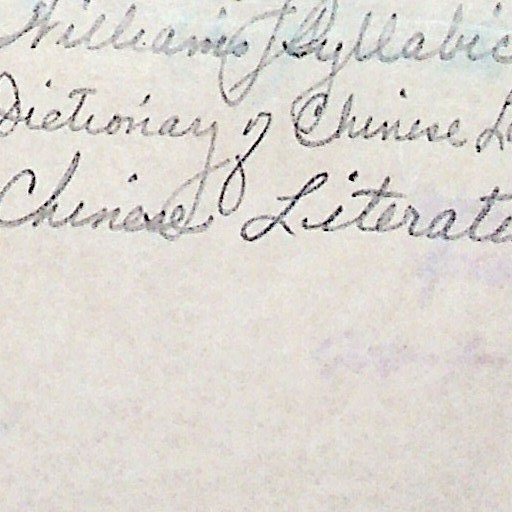 Williams Syllabic
Dictionary of Chinese
Chinese Literat